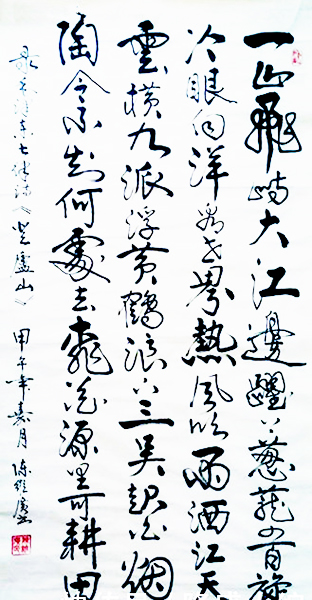 一山飛峙大江邊躍上蔥蘢四百旋
冷眼向洋看世界熱風吹雨洒江天
雲橫九派浮黄鶴浪下三吴起白烟
陶令不知何處去桃花源里可耕田
录毛泽东七律诗《登廬山》 甲午年嘉月